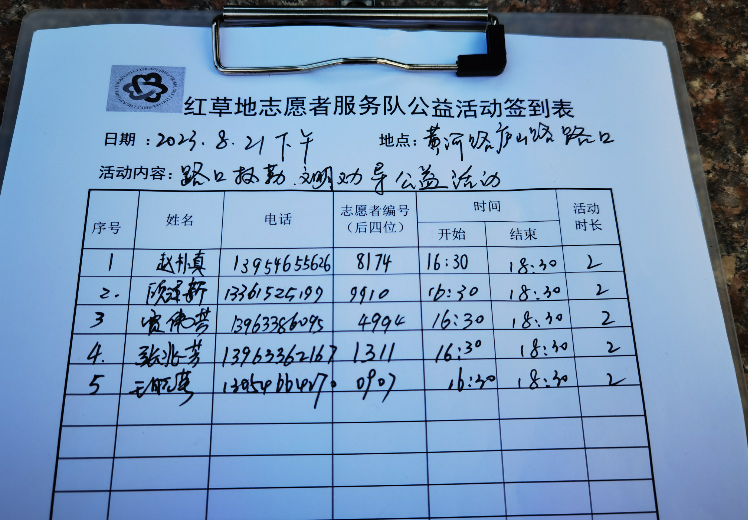 红草地志愿者服务队公益活动签到表
日期：2023.8.21下午 地点：黄河路庐山路路口
活动内容：路口执勤.文明劝导公益活动
序号 姓名 电话 志愿者编号（后四位） 时间 开始 结束 活动时长
1 赵朴真 13954655626 8174 16:30 18:30 2
2. 13361525199 9910 16:30 18:30 2
3 13963386095 4994 16:30 18:30 2
4. 张兆芳 13963362167 1311 16:30 18:30 2
5 0907 16:30 18:30 2